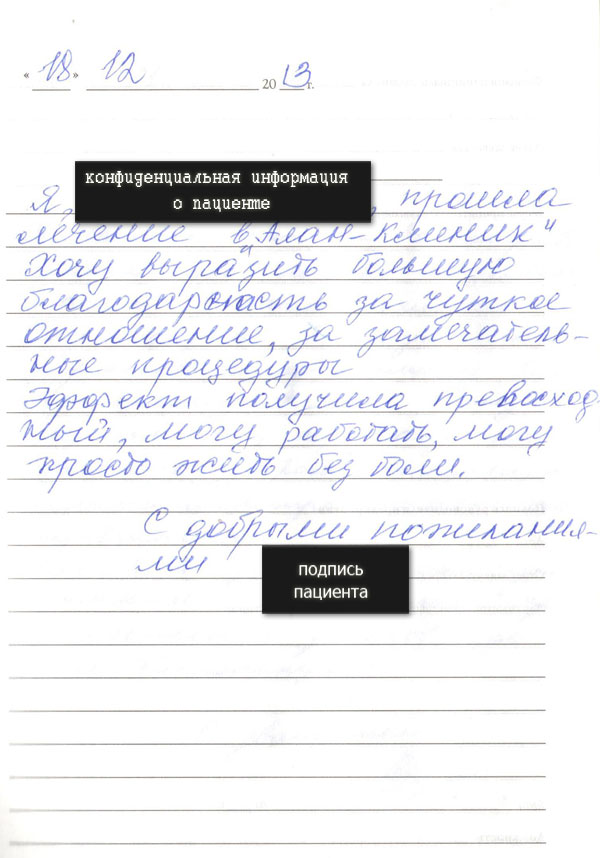 « 18 » 12 2013 г.
конфиденциальная информация
о пациенте
Я, , прошла
лечение в „Алан-Клиник"
Хочу выразить большую
благодарность за чуткое
отношение, за замечатель-
ные процедуры
Эффект получила превосход
ный, могу работать, могу
просто жить без боли.
С добрыми пожелания-
ми
подпись
пациента